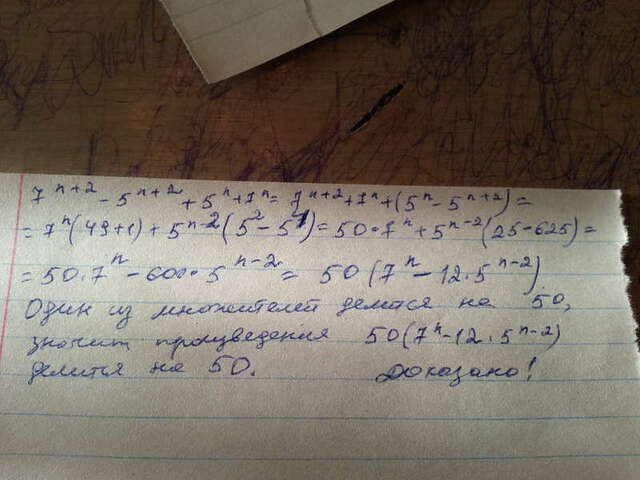 7^{n+2} - 5^{n+2} + 5^n + 7^n = 7^{n+2} + 7^n + (5^n - 5^{n+2}) =
= 7^n (49+1) + 5^{n-2} (5^2 - 5^4) = 50 · 7^n + 5^{n-2} (25 - 625) =
= 50 · 7^n - 600 · 5^{n-2} = 50 (7^n - 12 · 5^{n-2})
Один из множителей делится на 50,
значит произведения 50 (7^n - 12 · 5^{n-2})
делится на 50. Доказано!